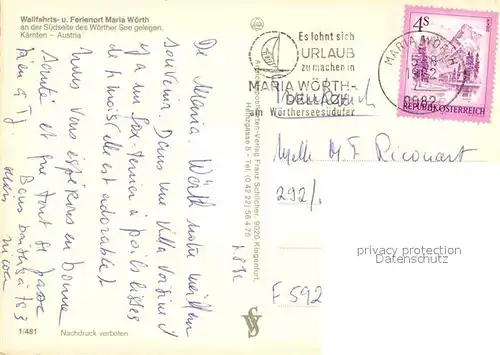 Wallfahrts- u. Ferienort Maria Wörth
an der Südseite des Wörther See gelegen.
Kärnten – Austria
De Maria. Wörth notre meilleur
souvenir. Dans une villa voisine il
y a un fox-terrier à poils lisses
de 7 mois elle est adorable !
Nous vous espérons en bonne
santé et que tout se passe
bien
Bons baisers à
1/481
Nachdruck verboten
Franz Schilcher, 9020 Klagenfurt,
Tel. (0 42 22) 56 4 75
Es lohnt sich
URLAUB
zu machen in
MARIA WÖRTH-
DELLACH
am Wörtherseesüdufer
MARIA WÖRTH
9082
4S
REPUBLIK ÖSTERREICH
Melle M. F. Ricouart
292/
F 592
privacy protection
Datenschutz